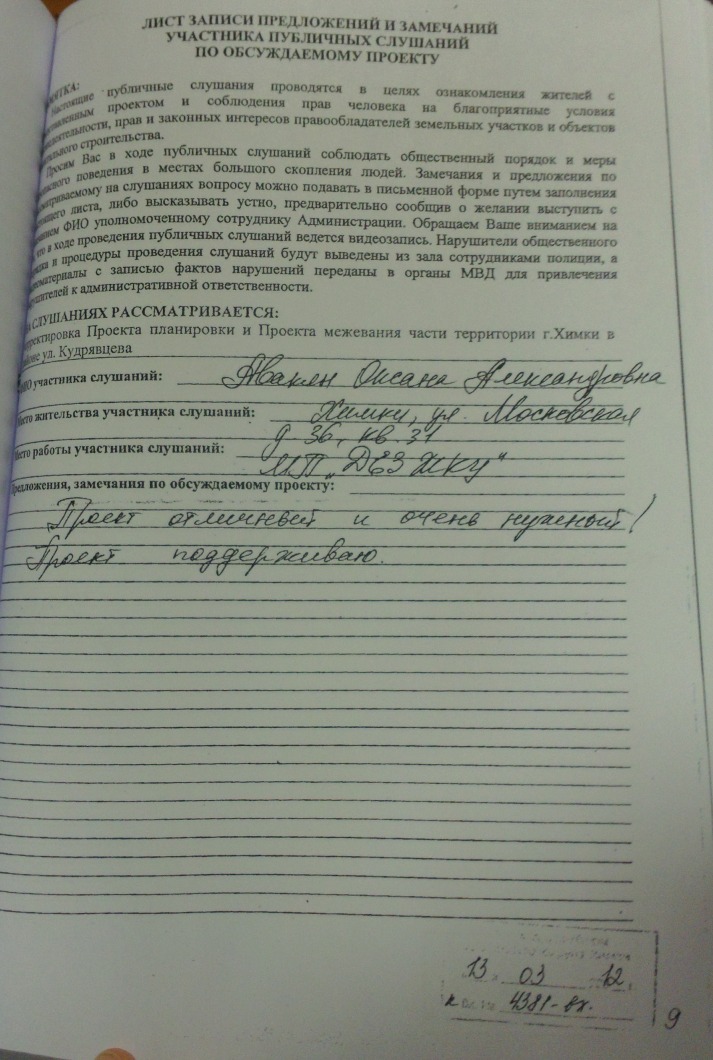 ЛИСТ ЗАПИСИ ПРЕДЛОЖЕНИЙ И ЗАМЕЧАНИЙ
УЧАСТНИКА ПУБЛИЧНЫХ СЛУШАНИЙ
ПО ОБСУЖДАЕМОМУ ПРОЕКТУ
МЯТКА:
Настоящие публичные слушания проводятся в целях ознакомления жителей с
проектом и соблюдения прав человека на благоприятные условия
деятельности, прав и законных интересов правообладателей земельных участков и объектов
ального строительства.
Просим Вас в ходе публичных слушаний соблюдать общественный порядок и меры
поведения в местах большого скопления людей. Замечания и предложения по
матриваемому на слушаниях вопросу можно подавать в письменной форме путем заполнения
щего листа, либо высказывать устно, предварительно сообщив о желании выступить с
ием ФИО уполномоченному сотруднику Администрации. Обращаем Ваше вниманием на
что в ходе проведения публичных слушаний ведется видеозапись. Нарушители общественного
ядка и процедуры проведения слушаний будут выведены из зала сотрудниками полиции, а
оматериалы с записью фактов нарушений переданы в органы МВД для привлечения
ушителей к административной ответственности.
НА СЛУШАНИЯХ РАССМАТРИВАЕТСЯ:
рректировка Проекта планировки и Проекта межевания части территории г.Химки в
йоне ул. Кудрявцева
ФИО участника слушаний: Авакян Оксана Александровна
Место жительства участника слушаний: Химки, ул. Московская
д 36, кв. 31
Место работы участника слушаний: МП „ДЕЗ ЖКУ"
Предложения, замечания по обсуждаемому проекту:
Проект отличный и очень нужный!
Проект поддерживаю.
13 03 12
4381-вх.
9